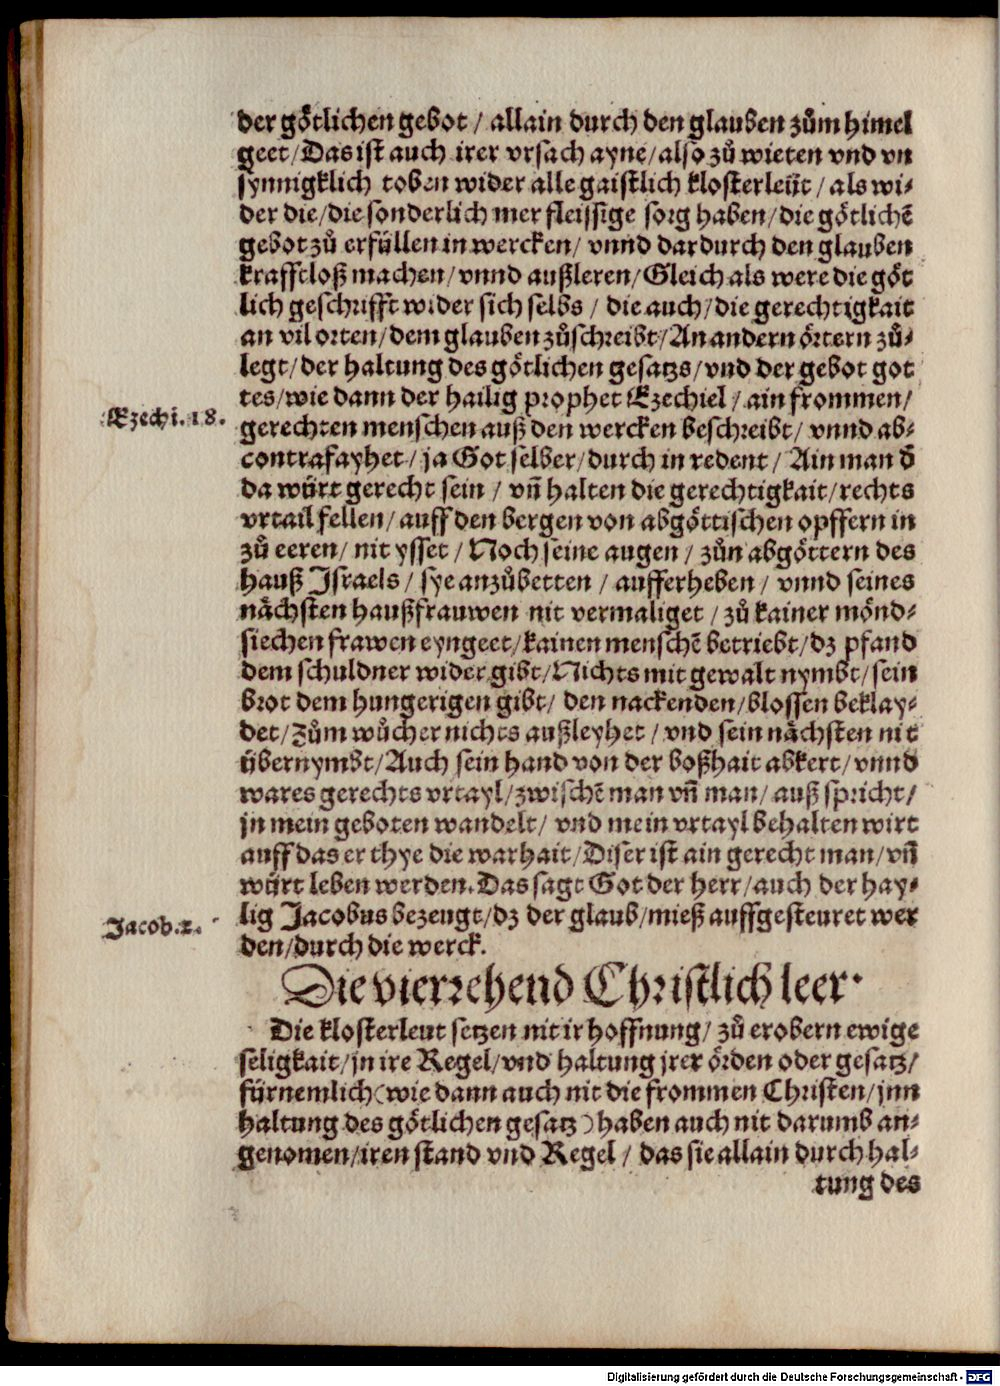 der goͤtlichen gebot / allain durch den glauben zuͦm himel
geet / Das ist auch irer vrsach ayne / also zuͦ wieten vnd vn
synnigklich toben wider alle gaistlich klosterleüt / als wi⸗
der die / die sonderlich mer fleissige sorg haben / die goͤtlichē
gebot zuͦ erfüllen in wercken / vnnd dardurch den glauben
krafftloß machen / vnnd außleren / Gleich als were die goͤt
lich geschrifft wider sich selbs / die auch / die gerechtigkait
an vil orten / dem glauben zuͦschreibt / An andern oͤrtern zuͦ⸗
legt / der haltung des goͤtlichen gesatzs / vnd der gebot got
tes / wie dann der hailig prophet Ezechiel / ain frommen /
Ezechi. 18.
gerechten menschen auß den wercken beschreibt / vnnd ab⸗
contrafayhet / ja Got selber / durch in redent / Ain man d̄
da würt gerecht sein / vn̄ halten die gerechtigkait / rechts
vrtail fellen / auff den bergen von abgoͤttischen opffern in
zuͦ eeren / nit ysset / Noch seine augen / zuͦn abgoͤttern des
hauß Israels / sye anzuͦbetten / aufferheben / vnnd seines
naͤchsten haußfrauwen nit vermaliget / zuͦ kainer moͤnd⸗
siechen frawen eyngeet / kainen menschē betriebt / dz pfand
dem schuldner wider gibt / Nichts mit gewalt nymbt / sein
brot dem hungerigen gibt / den nackenden / blossen beklay⸗
det / Zuͦm wuͦcher nichts außleyhet / vnd sein naͤchsten nit
übernymbt / Auch sein hand von der boßhait abkert / vnnd
wares gerechts vrtayl / zwischē man vn̄ man / auß spricht /
jn mein geboten wandelt / vnd mein vrtayl behalten wirt
auff das er thye die warhait / Diser ist ain gerecht man / vn̄
würt leben werden. Das sagt Got der herr / auch der hay⸗
lig Jacobus bezeugt / dz der glaub / mieß auffgesteuret wer
Jacob. 2.
den / durch die werck.
Die vierzehend Christlich leer.
Die klosterleut setzen nit ir hoffnung / zuͦ erobern ewige
seligkait / jn ire Regel / vnd haltung jrer oͤrden oder gesatz /
fürnemlich (wie dann auch nit die frommen Christen / jnn
haltung des goͤtlichen gesatz) haben auch nit darumb an⸗
genomen / iren stand vnd Regel / das sie allain durch hal⸗
tung des
Digitalisierung gefördert durch die Deutsche Forschungsgemeinschaft - DFG